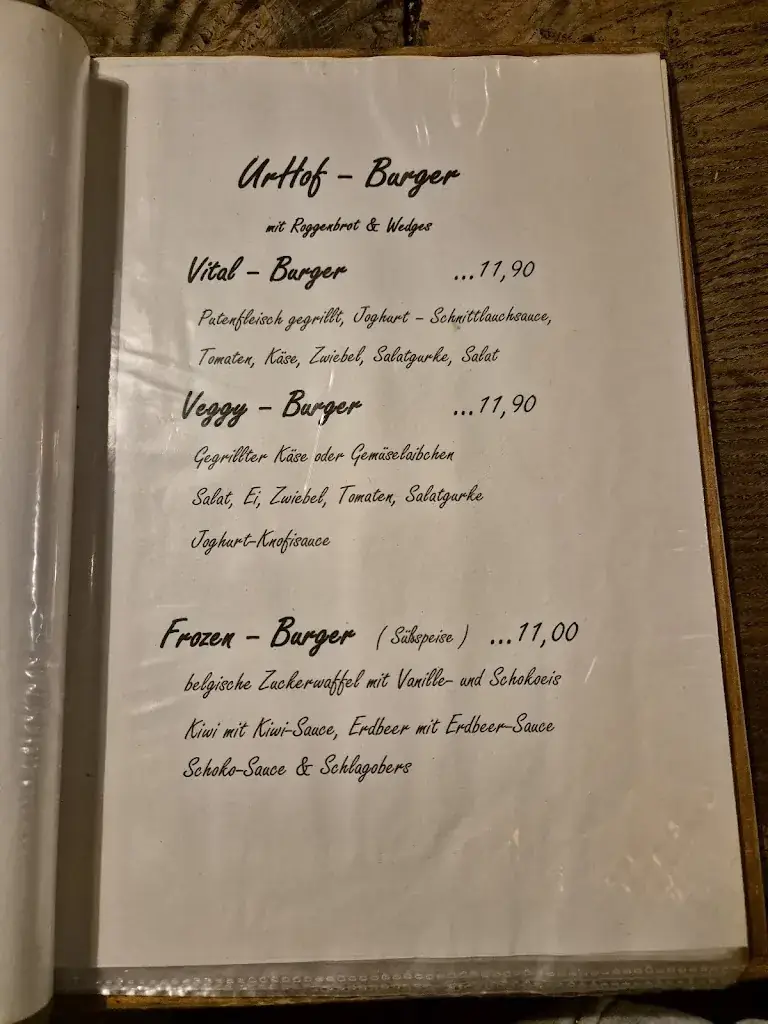 UrHof - Burger
mit Roggenbrot & Wedges
Vital - Burger ...11,90
Putenfleisch gegrillt, Joghurt - Schnittlauchsauce,
Tomaten, Käse, Zwiebel, Salatgurke, Salat
Veggy - Burger ...11,90
Gegrillter Käse oder Gemüselaibchen
Salat, Ei, Zwiebel, Tomaten, Salatgurke
Joghurt-Knofisauce
Frozen - Burger ( Süßspeise ) ...11,00
belgische Zuckerwaffel mit Vanille- und Schokoeis
Kiwi mit Kiwi-Sauce, Erdbeer mit Erdbeer-Sauce
Schoko-Sauce & Schlagobers